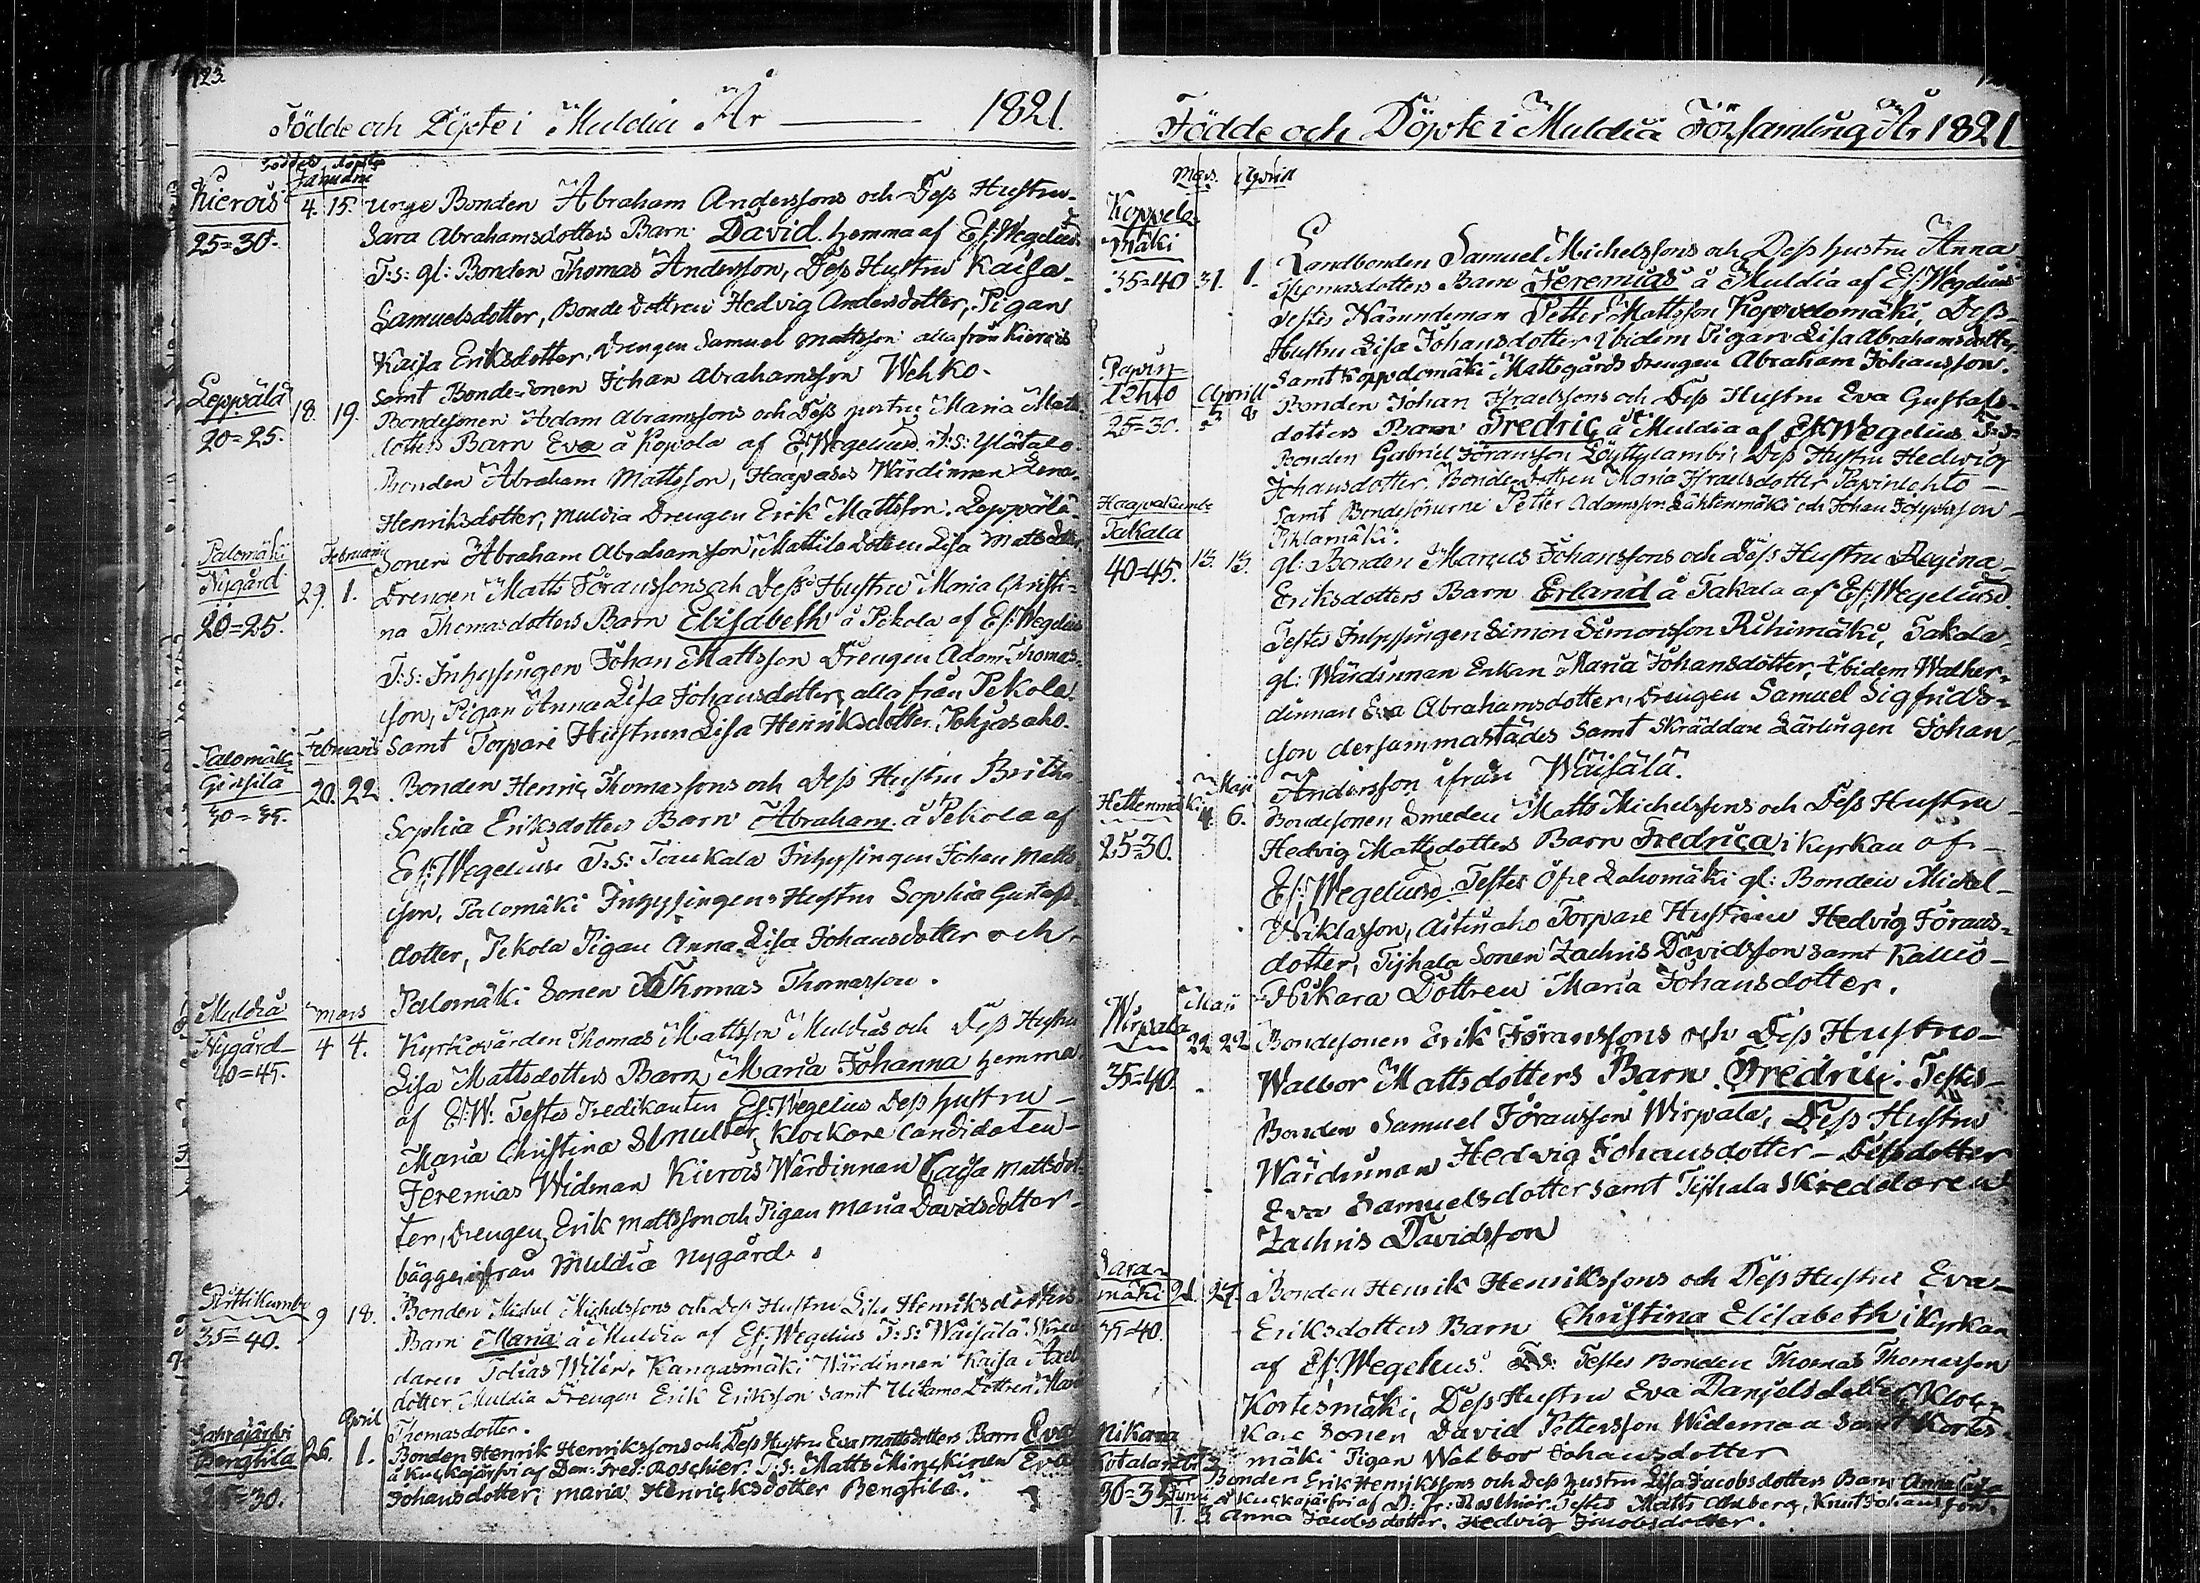 123.
Födde och Döpte i Muldia År — 1821.
Födde döpte
Januarii
Kierois 4. 15. unge Bonden Abraham Anderssons och Dess Hustru
25=30. Sara Abrahamsdotters Barn David hemma af Ef: Wegelius
T:s: gl: Bonden Thomas Andersson, Dess Hustru Kaisa
Samuelsdotter, Bonde dottren Hedvig Andersdotter, Pigan
Kaisa Eriksdotter, Drengen Samuel Mattsson alla från Kierois
samt Bonde-sonen Johan Abrahamsson Wehko.
Leppälä 18. 19. Bondesonen Adam Abramssons och Dess hustru Maria Matts
20=25. dotters Barn Eva å Kopola af E: Wegelius. T:s: Ylätalo
Bonden Abraham Mattsson, Haapasas Wärdinnan Lena
Henriksdotter, Muldia Drengen Erik Mattsson. Leppälä
Sonen Abraham Abrahamsson, Mattila dottren Lisa Mattsdotter
Palomäki Februarii
Nygård 29. 1. Drengen Matts Göranssons och Dess Hustru Maria Christi-
20=25. na Thomasdotters Barn Elisabeth å Pekola af Ef: Wegelius
T:s: Inhysingen Johan Mattsson Drengen Adam Thomas-
son, Pigan Anna Lisa Johansdotter, alla från Pekola
Samt Torpare Hustrun Lisa Henriksdotter, Pohjasaho.
Palomäki Februarii
20. 22 Bonden Henric Thomassons och Dess Hustru Britha
30=35. Sophia Eriksdotters Barn Abraham å Pekola af
Ef: Wegelius T:s: Toukala Inhysingen Johan Matts-
son, Palomäki Inhysingens Hustru Sophia Gustafs-
dotter, Pekola Pigan Anna Lisa Johansdotter och
Palomäki Sonen Thomas Thomasson.
Muldia Mars
Nygård 4 4. Kyrkovärden Thomas Mattsson Muldias och Dess Hustru
40=45. Lisa Mattsdotters Barn Maria Johanna hemma
af E:W: Testes Predikanten Ef: Wegelius Dess Hustru
Maria Christina Klockare Candidaten
Jeremias Widman Kierois Wärdinnan Caisa Mattsdot-
ter, Drengen Erik Mattsson och Pigan Maria Davidsdotter
bägge ifrån Muldia Nygård.
9 18. Bonden Michel Michelssons och Dess Hustru Lisa Henriksdotters
35=40. Barn Maria å Muldia af Ef: Wegelius T:s: Waisälä Skred-
daren Tobias Wilén, Kangasmäki Wärdinnan Kaisa Axels
dotter, Muldia Drengen Erik Eriksson samt Uitamo Dottren Maria
April Thomasdotter.
Bengtila 26. 1. Bonden Henrik Henrikssons och Dess Hustru Eva Mattsdotters Barn Eva
25=30. å Kuckajärfvi af Dom: Fred: Roschier. T:s: Matts Minckinen Eva
Johansdotter, Maria Henricksdotter Bengtila.
Födde och Döpte i Muldia Församling År 1821
Mars. April
Koppelo-
mäki Landbonden Samuel Michelssons och Dess hustru Anna
35=40 31. 1. Thomasdotters Barn Jeremias å Muldia af Ef: Wegelius
Testes Nämndeman Petter Mattsson Koppelomäki, Dess
Hustru Lisa Johansdotter ibidem Pigan Lisa Abrahamsdotter
samt Koppelomäki Mattsgårds drengen Abraham Johansson.
Papin-
lehto April Bonden Johan Israelssons och Dess Hustru Eva Gustafs-
25=30. 5 8 dotters Barn Fredric å Muldia af Ef: Wegelius T:s:
Bonden Gabriel Göransson Löyttylambi, Dess Hustru Hedwig
Johansdotter. Bondedottren Maria Israelsdotter Papinlehto
samt Bondesönerne Petter Adamsson Lähtenmäki och Johan Josephsson
Piklamäki.
Haapakumbu
Takala gl: Bonden Marcus Johanssons och Dess Hustru Regina
40=45. 13. 13. Eriksdotters Barn Erland å Takala af Ef: Wegelius.
Testes Inhysingen Simon Simonsson Riihimäki, Takala
gl: Wärdinnan Enkan Maria Johansdotter, ibidem Wather-
dinnan Eva Abrahamsdotter, Drengen Samuel Sigfrids-
son dersammastädes samt Skräddare Lärlingen Johan
Andersson ifrån Wäisälä.
Hettenmäki Maji
4. 6. Bondesonen Smeden Matts Michelssons och Dess Hustru
25=30. Hedvig Mattsdotters Barn Fredrica i Kyrkan af
Ef: Wegelius. Testes Öfre Lahomäki gl: Bonden Michel
Niklasson, Aitinaho Torpare Hustrun Hedvig Görans-
dotter, Tijhala Sonen Zachris Davidsson samt Kallio
Hikara Dottren Maria Johansdotter.
Wirpala Maji
22 22 Bondesonen Erik Göranssons och Dess Hustru
35=40. Walbor Mattsdotters Barn Fredric. Testes
Bonden Samuel Göransson Wirpala, Dess Hustru
Wärdinnan Hedwig Johansdotter – Dess dotter
Eva Samuelsdotter samt Tijhala Skreddaren
Zachris Davidsson
Sara-
mäki 21. 27. Bonden Henrik Henrikssons och Dess Hustru Eva
35=40. Eriksdotters Barn Christina Elisabeth i Kyrkan
af Ef: Wegelius. Testes Bonden Thomas Thomasson
Kortesmäki, Dess Hustru Eva Danielsdotter, Kloc-
kare Sonen David Pettersson Wideman samt Kortes-
mäki Pigan Walbor Johansdotter
Nikara
Bonden Erik Henrikssons och Dess hustru Lisa Jacobsdotters Barn Anna Lisa
30=35 Junii å Kuckajärfvi af D: Fr: Roschier. Testes Matts Ahlberg, Knut Johansson,
1. 3. Anna Jacobsdotter, Hedvig Jacobsdotter.